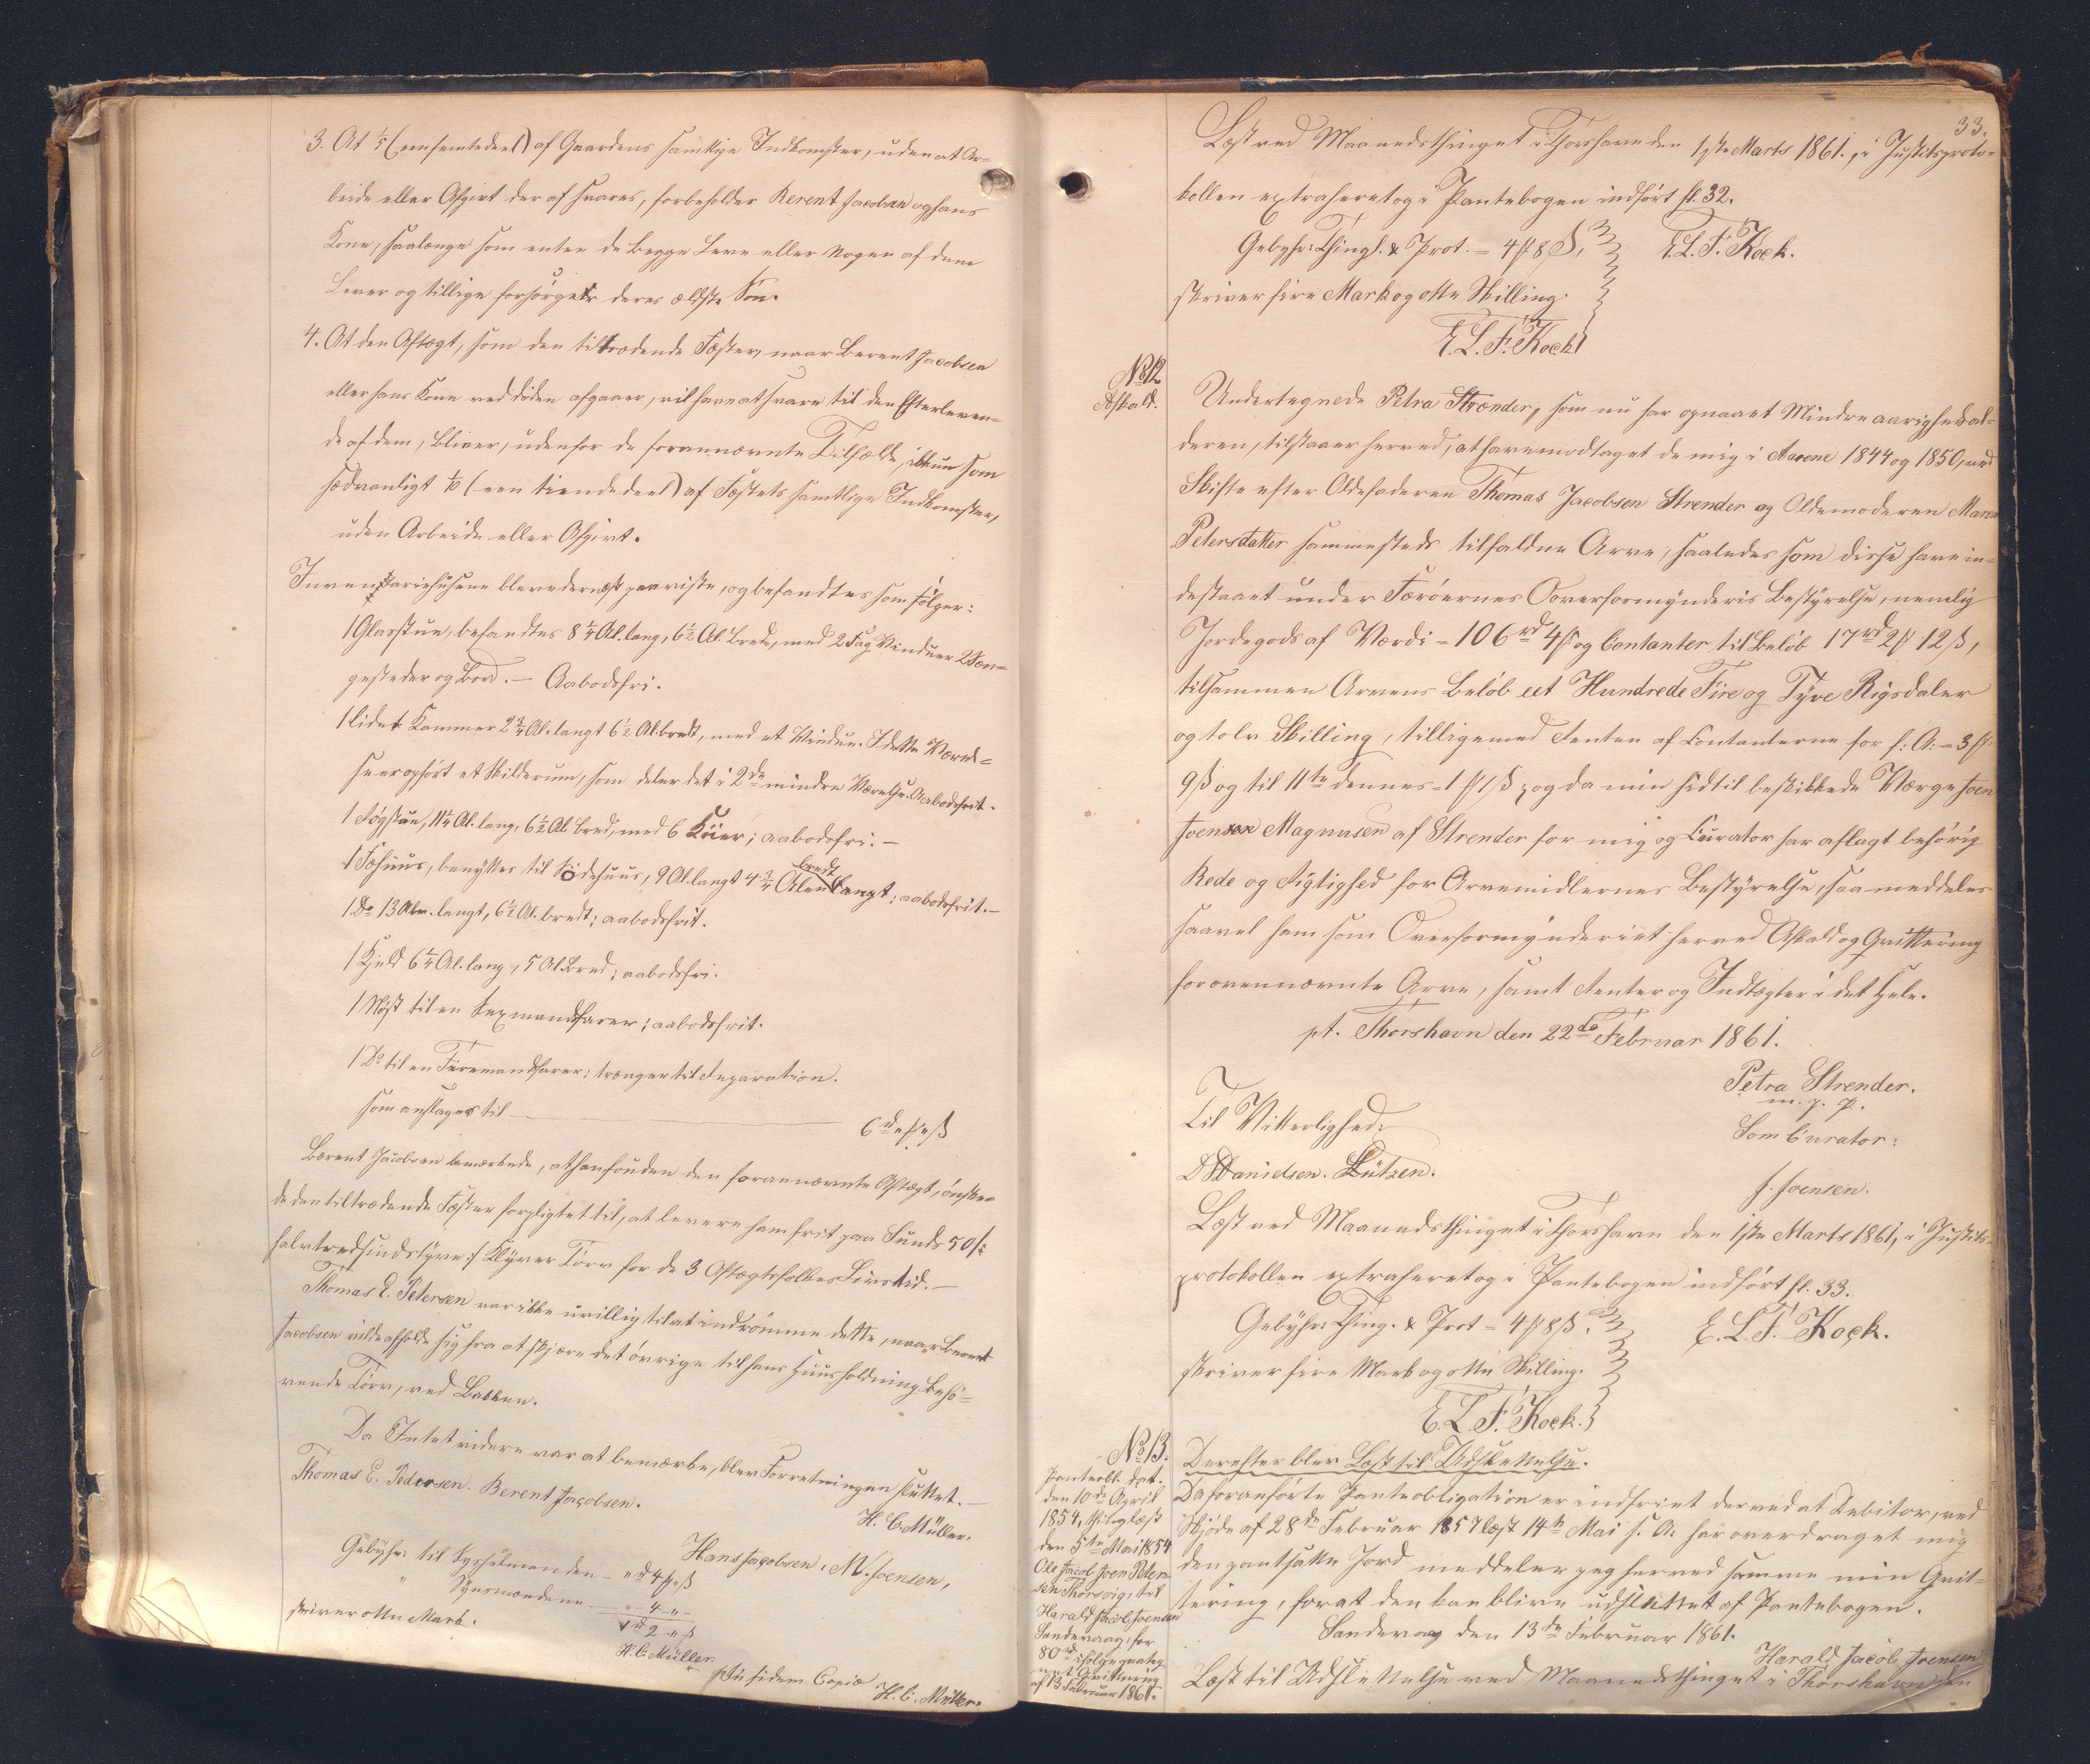 3. At 1/5 (een femtedeel) af Gaardens samtlige Indkomster, uden at Ar-
beide eller Afgivt der af svares, forbeholder Berent Jacobsen og hans
Kone, saalænge som enten de begge leve eller nogen af dem
lever og tillige forsørger deres ældste Søn.
4. At den Aftægt, som den tiltrædende Fæster, naar Berent Jacobsen
eller hans Kone ved døden afgaaer, vil have at svare til den Efterleven-
de af dem, bliver, udenfor de forannævnte Tilfælde, ikkun som
sædvanligt 1/10 (een tiendedeel) af Fæstets samtlige Indkomster,
uden Arbeide eller Afgivt.
Inventariehusene bleve dernæst paaviste, og befandtes som følger:
1 Glasstue, befandtes 8 1/4 Al. lang, 6 1/2 Al. bred, med 2 Fag Vinduer 2 Sen-
gesteder og Bord. – Aabodsfri.
1 lidet Kammer 2 3/4 Al. langt 6 1/2 Al. bredt, med et Vindue. I dette Værel-
se er opført et Skilderum, som deler det i 2de mindre Værelser. Aabodsfrit.
1 Røgstue, 11 1/4 Al. lang, 6 1/2 Al. bred, med 6 Køier; aabodsfri. –
1 Fæhuus, benyttes til Hødehuus, 9 Al. langt 4 3/4 Alen bredt; aabodsfrit. –
1 Do 13 Aln. langt, 6 1/2 Al. bredt; aabodsfrit.
1 Hjeld 6 1/4 Al. lang, 5 Al. bred; aabodsfri.
1 Nøst til en Sexmandsfarer; aabodsfrit.
1 Do til en Firemandsfarer: trænger til Reparation.
som anslages til — 6 rd " ß " ß
Berent Jacobsen bemærkede, at han foruden den forannævnte Aftægt, ønske-
de den tiltrædende Fæster forpligtet til, at levere ham frit paa Sunds 50 /:
halvtredsindstyve :/ Klyver Tørv for de 3 Aftægtsfolkes Livstid. –
Thomas E. Petersen var ikke uvillig til at indrømme dette, naar Berent
Jacobsen vilde afholde sig fra at skjære det øvrige til hans Huusholdning behø-
vende Tørv, ved Bakken.
Da Intet videre var at bemærke, blev Forretningen sluttet. –
Thomas E. Pedersen. Berent Jacobsen.
H. C. Müller.
Hans Jacobsen, M. Joensen,
Gebyhr: til Sysselmanden – " rd 4 ß " ß
" Synsmændene – " – 4 – " –
1 rd 2 " ß
skriver otte Mark.
H. C. Müller
In fidem Copiæ
H. C. Müller.
33.
Læst ved Maanedsthinget i Thorshavn den 1ste Marts 1861., i Justitsproto-
kollen extraheret og i Pantebogen indført fl. 32.
Gebyhr: Thingl. & Prot. = 4 ß 8 ß, E. L. F. Kock.
skriver fire Mark og otte Skilling.
E. L. F. Kock
No 12
Afkald.
Undertegnede Petra Strender, som nu har opnaaet Mindreaarighedsal-
deren, tilstaaer herved, at have modtaget de mig i Aarene 1844 og 1850, ved
Skifte efter Oldefaderen Thomas Jacobsen Strender og Oldemoderen Maren
Petersdatter sammesteds tilfaldne Arve, saaledes som disse have in-
destaaet under Færøernes Overformynderis Bestyrelse, nemlig
Jordegods af Værdi = 106 rd 4 ß og Contanter til Beløb 17 rd 2 ß 12 ß,
tilsammen Arvens Beløb eet Hundrede Fire og Tyve Rigsdaler
og tolv Skilling, tilligemed Renten af Contanterne for f. A. = 3 ß
9 ß og til 11te dennes = 1 ß 1 ß; og da min hidtil beskikkede Værge Joen
Joensen Magnusen af Strender for mig og Curator har aflagt behørig
Rede og Rigtighed for Arvemidlernes Bestyrelse, saa meddeles
saavel ham som Overformynderiet herved Afkald og Qvittering
for ovennævnte Arve, samt Renter og Indtægter i det Hele.
pt. Thorshavn den 22de Februar 1861.
Petra Strender.
m. p. p.
Til Vitterlighed:
Som Curator:
D Danielsen. Lützen.
J. Joensen.
Læst ved Maanedsthinget i Thorshavn den 1ste Marts 1861, i Justits-
protokollen extraheret og i Pantebogen indført fl. 33.
Gebyhr: Thing. & Prot = 4 ß 8 ß. E. L. F. Kock.
skriver fire Mark og otte Skilling.
E. L. F. Kock.
No 13.
Panteobl. dat.
den 10de April
1854, thinglæst
den 5te Mai 1854
Ole Jacob Joen Peter-
sen Thorsvig, til
Harald Jacob Joensen
Sandevaag, for
80 rd, ifølge paateg-
net Qvittering
af 13 Februar 1861.
Derefter blev Læst til Udslettelse.
Da foranførte Panteobligation er indfriet derved at Debitor, ved
Skjøde af 28de Februar 1857 læst 14de Mai s. A. har overdraget mig
den pantsatte Jord meddeler jeg herved samme min Qvit-
tering, for at den kan blive udslettet af Pantebogen.
Sandevaag den 13de Februar 1861.
Harald Jacob Joensen
Læst til Udslettelse ved Maanedsthinget i Thorshavn den